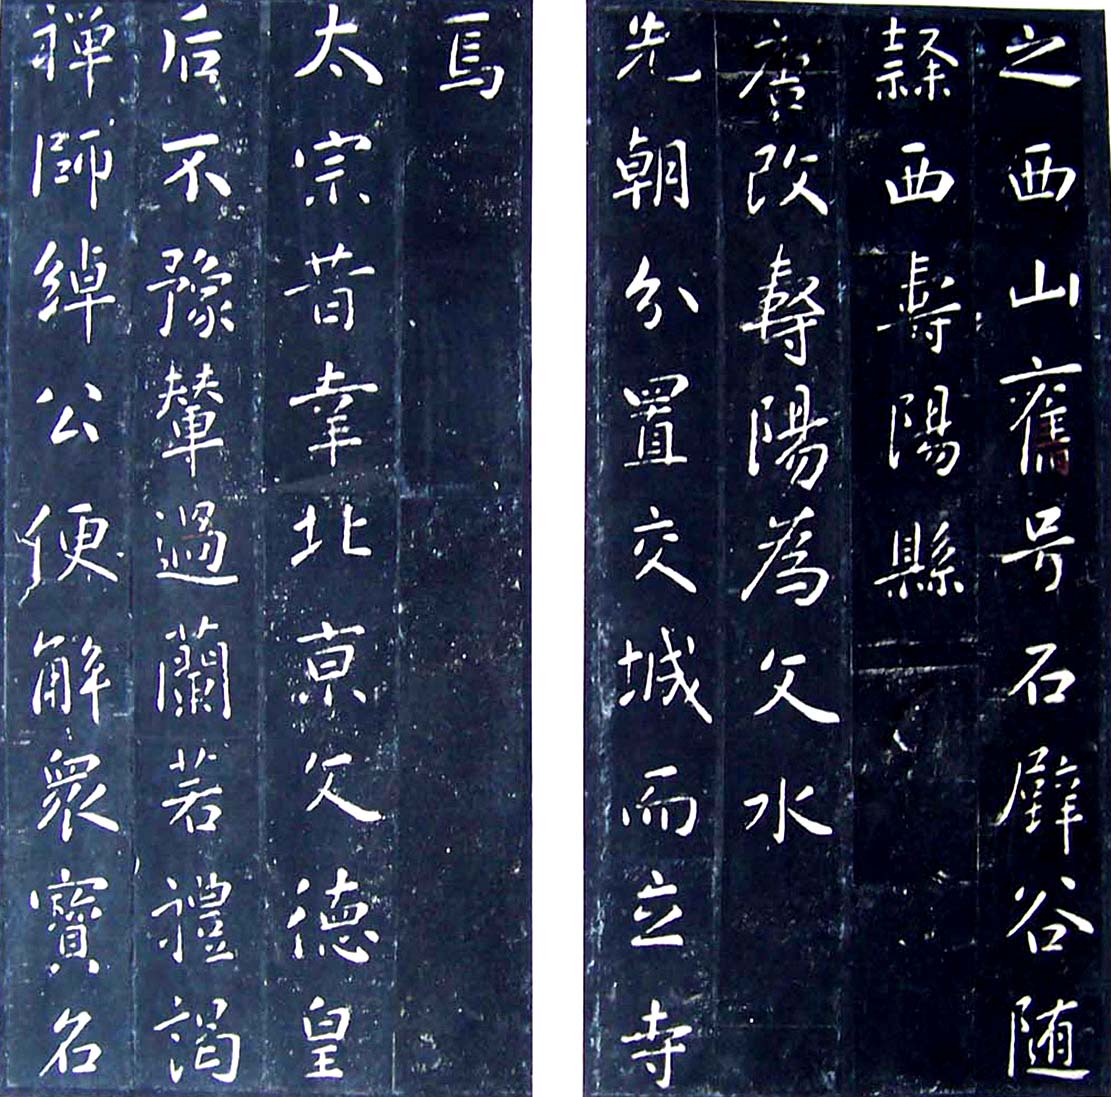 之西山舊号石壁谷随
隸西壽陽縣
唐改壽陽為文水
先朝分置交城而立寺
焉
太宗昔幸北京文德皇
后不豫輦過蘭若禮謁
禪師綽公便解眾寶名